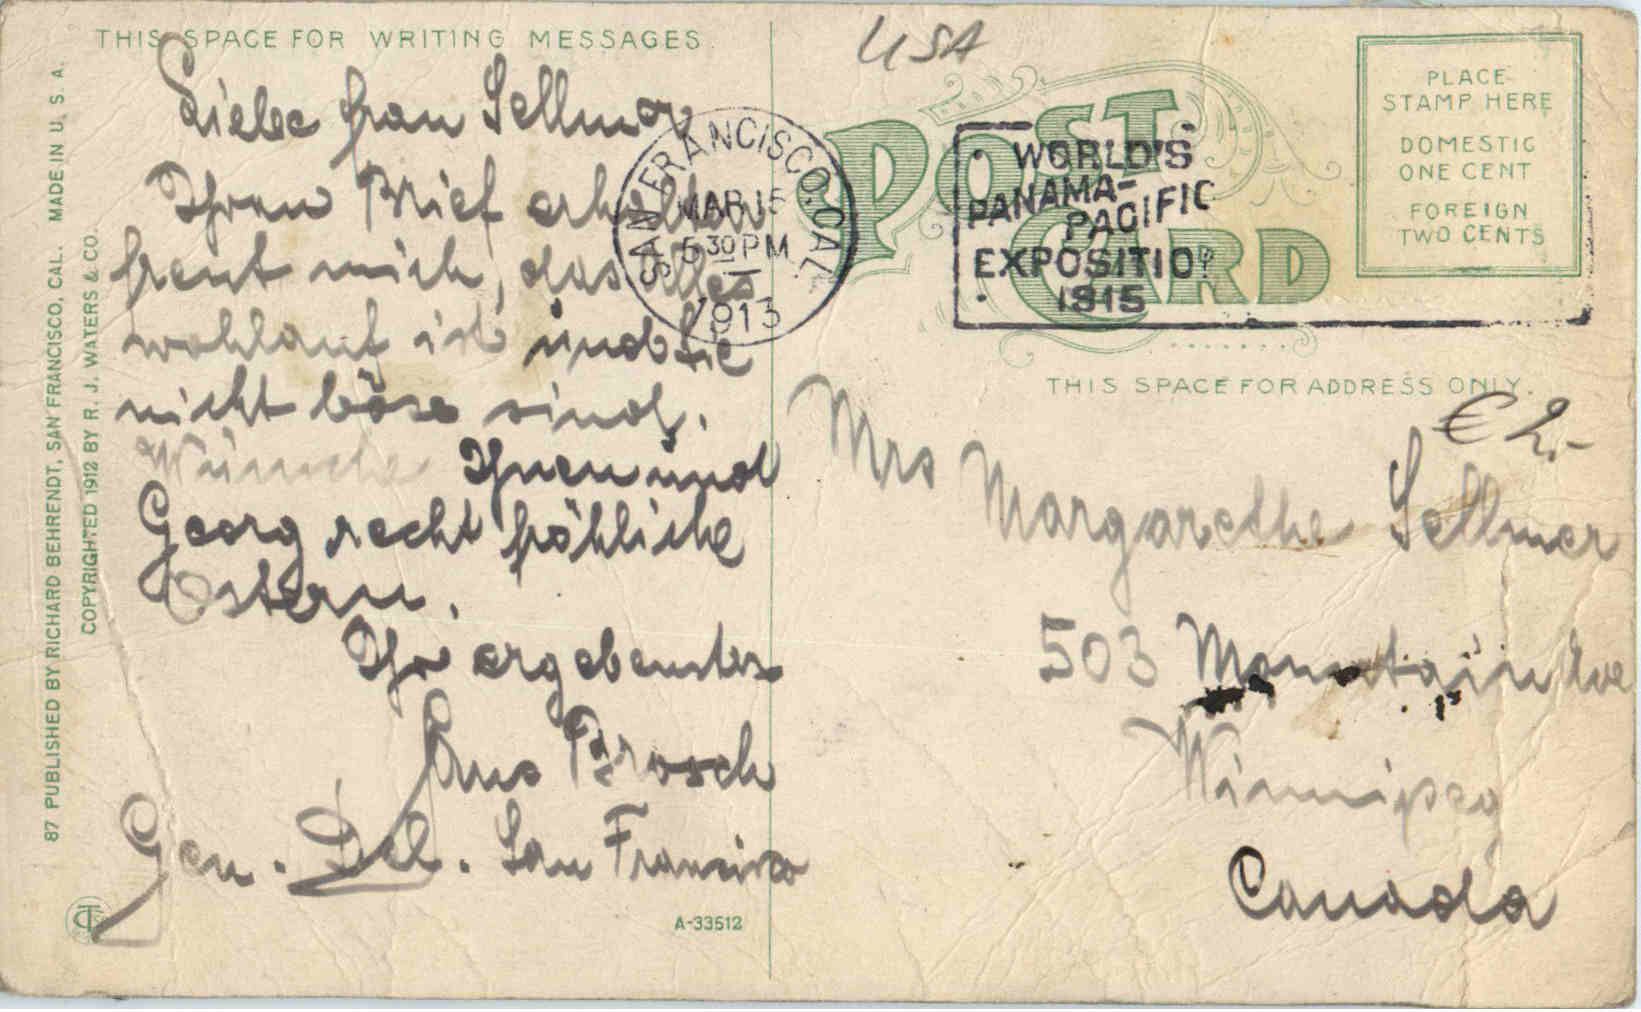 THIS SPACE FOR WRITING MESSAGES
Liebe Frau Sellmer
Ihren Brief erhalten
freut mich, das alles
wohlauf ist und Sie
nicht böse sind.
Wünsche Ihnen und
Georg recht fröhliche
Ostern.
Ihr ergebenster
Hans Brosch
Gen. Del. San Francisco
A-33512
87 PUBLISHED BY RICHARD BEHRENDT, SAN FRANCISCO, CAL. MADE IN U. S. A.
COPYRIGHTED 1912 BY R. J. WATERS & CO.
USA
SAN FRANCISCO, CAL.
MAR 15
5 30 PM
1913
POST
CARD
WORLD'S
PANAMA-
PACIFIC
EXPOSITIO
1915
PLACE
STAMP HERE
DOMESTIC
ONE CENT
FOREIGN
TWO CENTS
THIS SPACE FOR ADDRESS ONLY.
€ 2,-
Mrs Margarethe Sellmer
503 Mountain Ave
Winnipeg
Canada